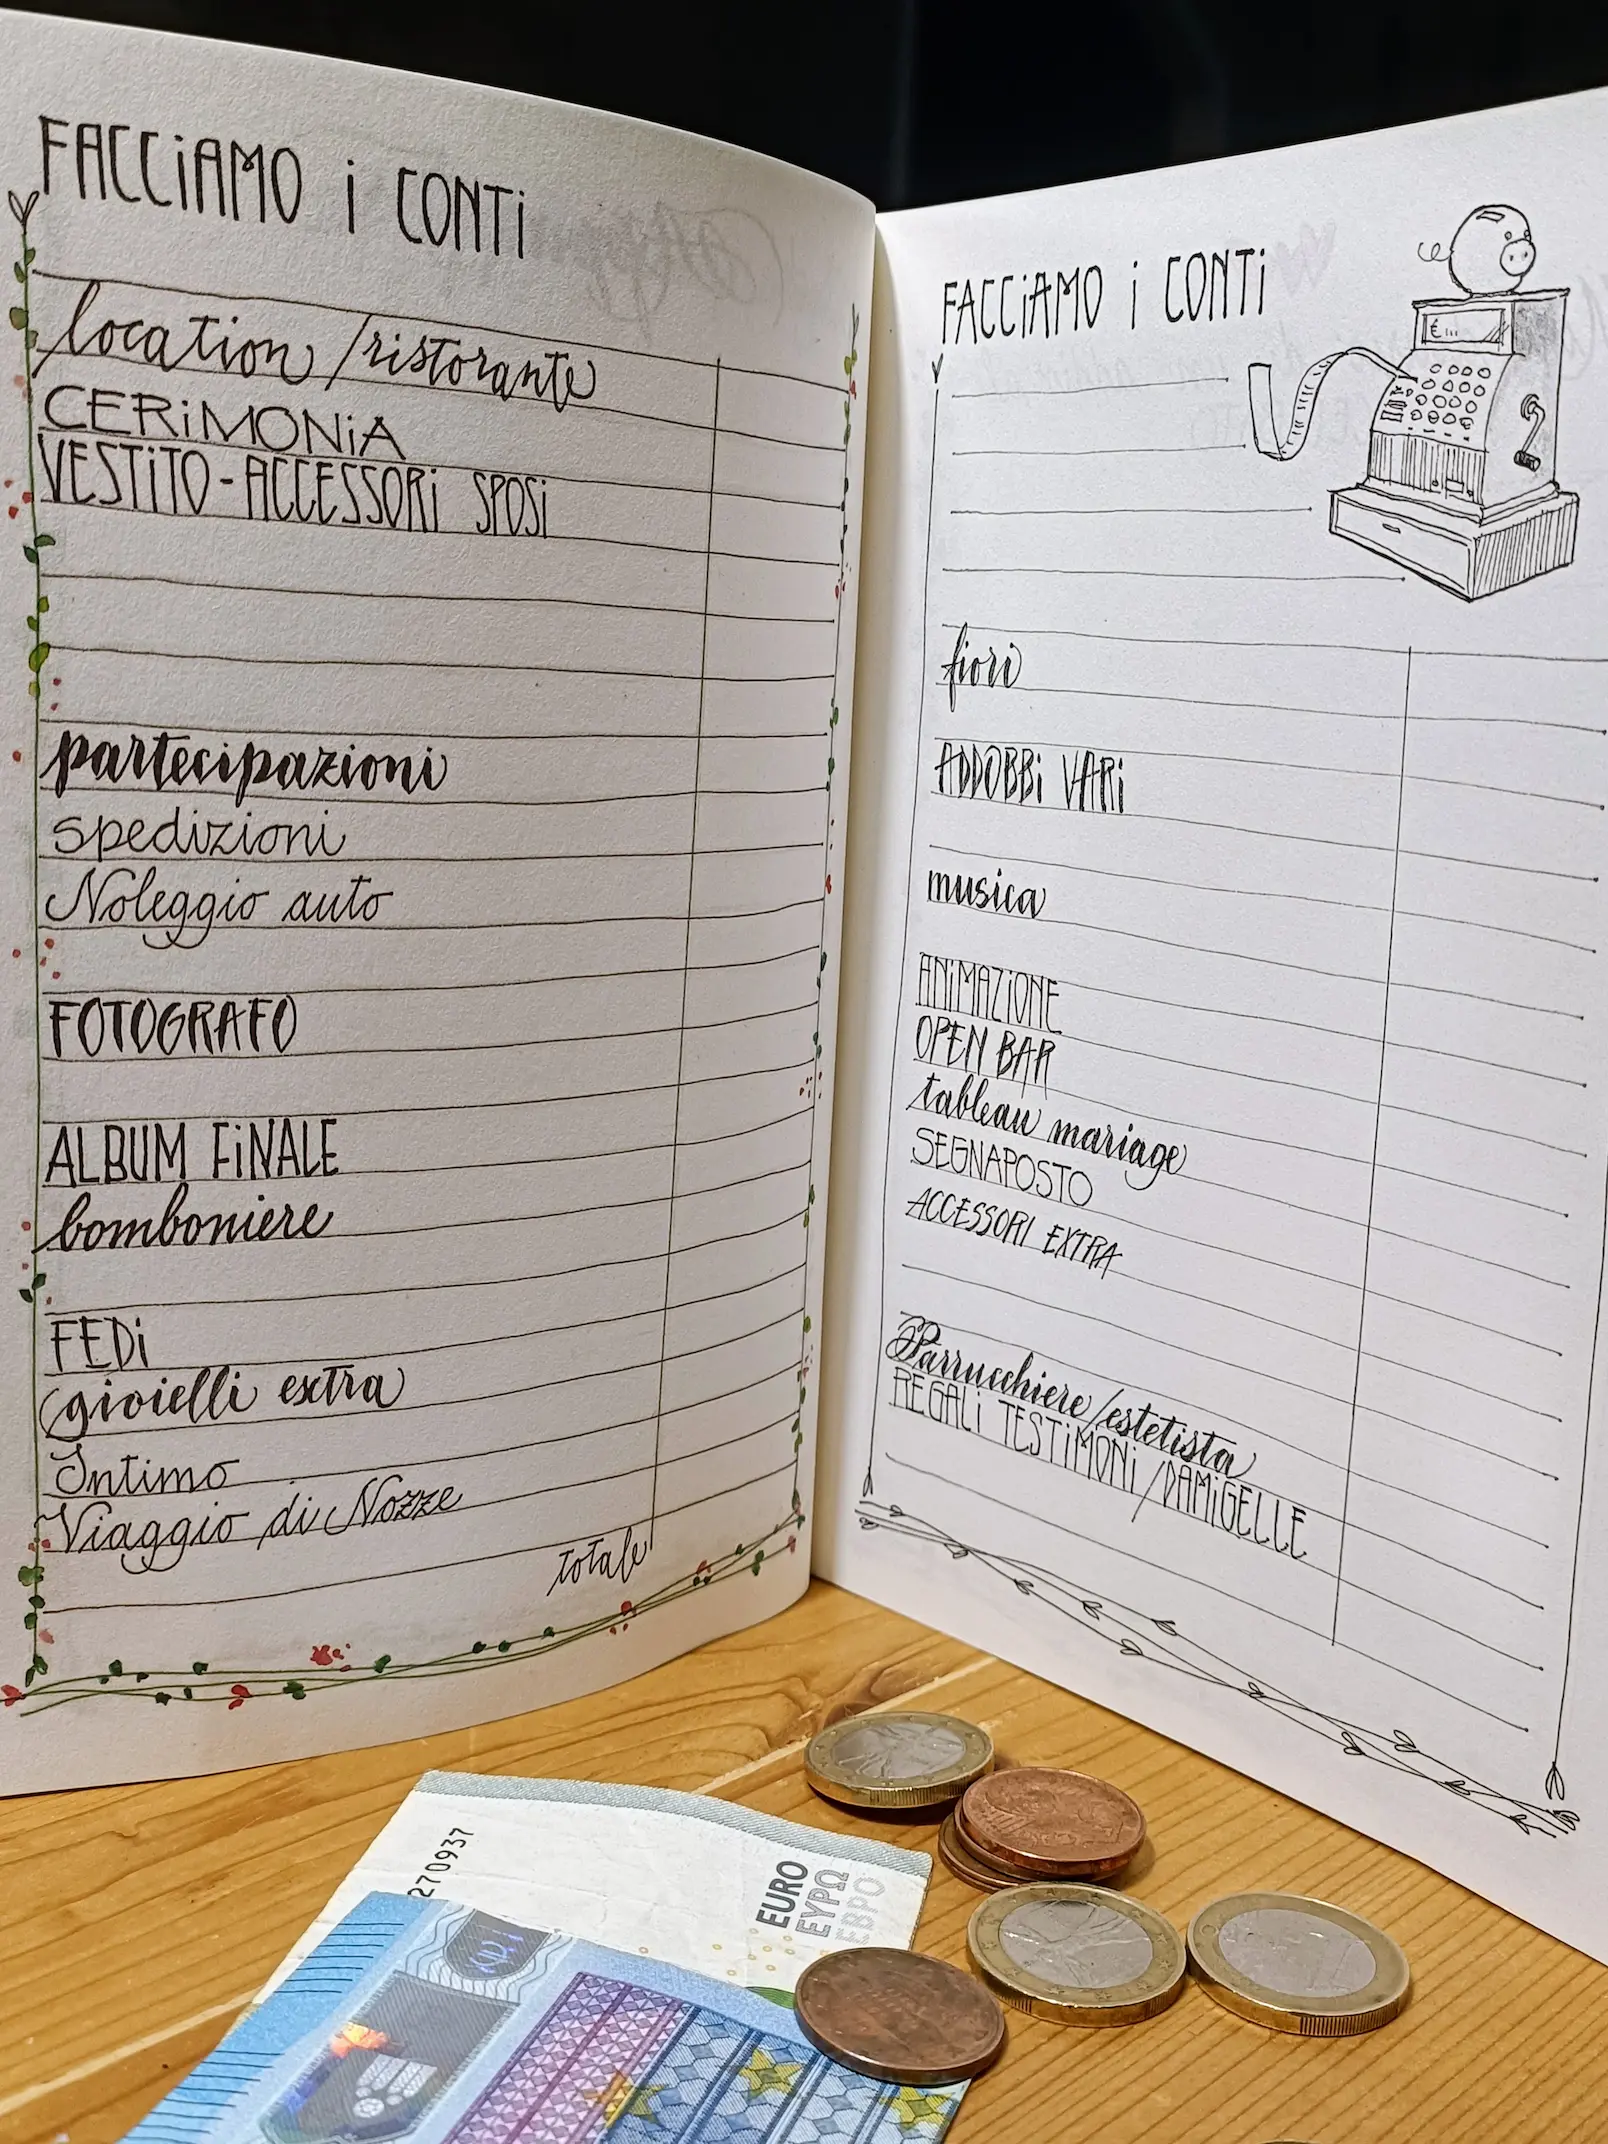 FACCiAMO i CONTi
location /ristorante
CERiMONiA
VESTiTO-ACCESSORi SPOSi
partecipazioni
spedizioni
Noleggio auto
FOTOGRAFO
ALBUM FiNALE
bomboniere
FEDi
gioielli extra
Intimo
Viaggio di Nozze
totale
FACCiAMO i CONTi
€
fiori
ADDOBBi VARi
musica
ANiMAZiONE
OPEN BAR
tableau mariage
SEGNAPOSTO
ACCESSORI EXTRA
Parrucchiere/estetista
REGALi TESTiMONi/DAMiGELLE
270937
EURO
ΕΥΡΩ
ЕВРО